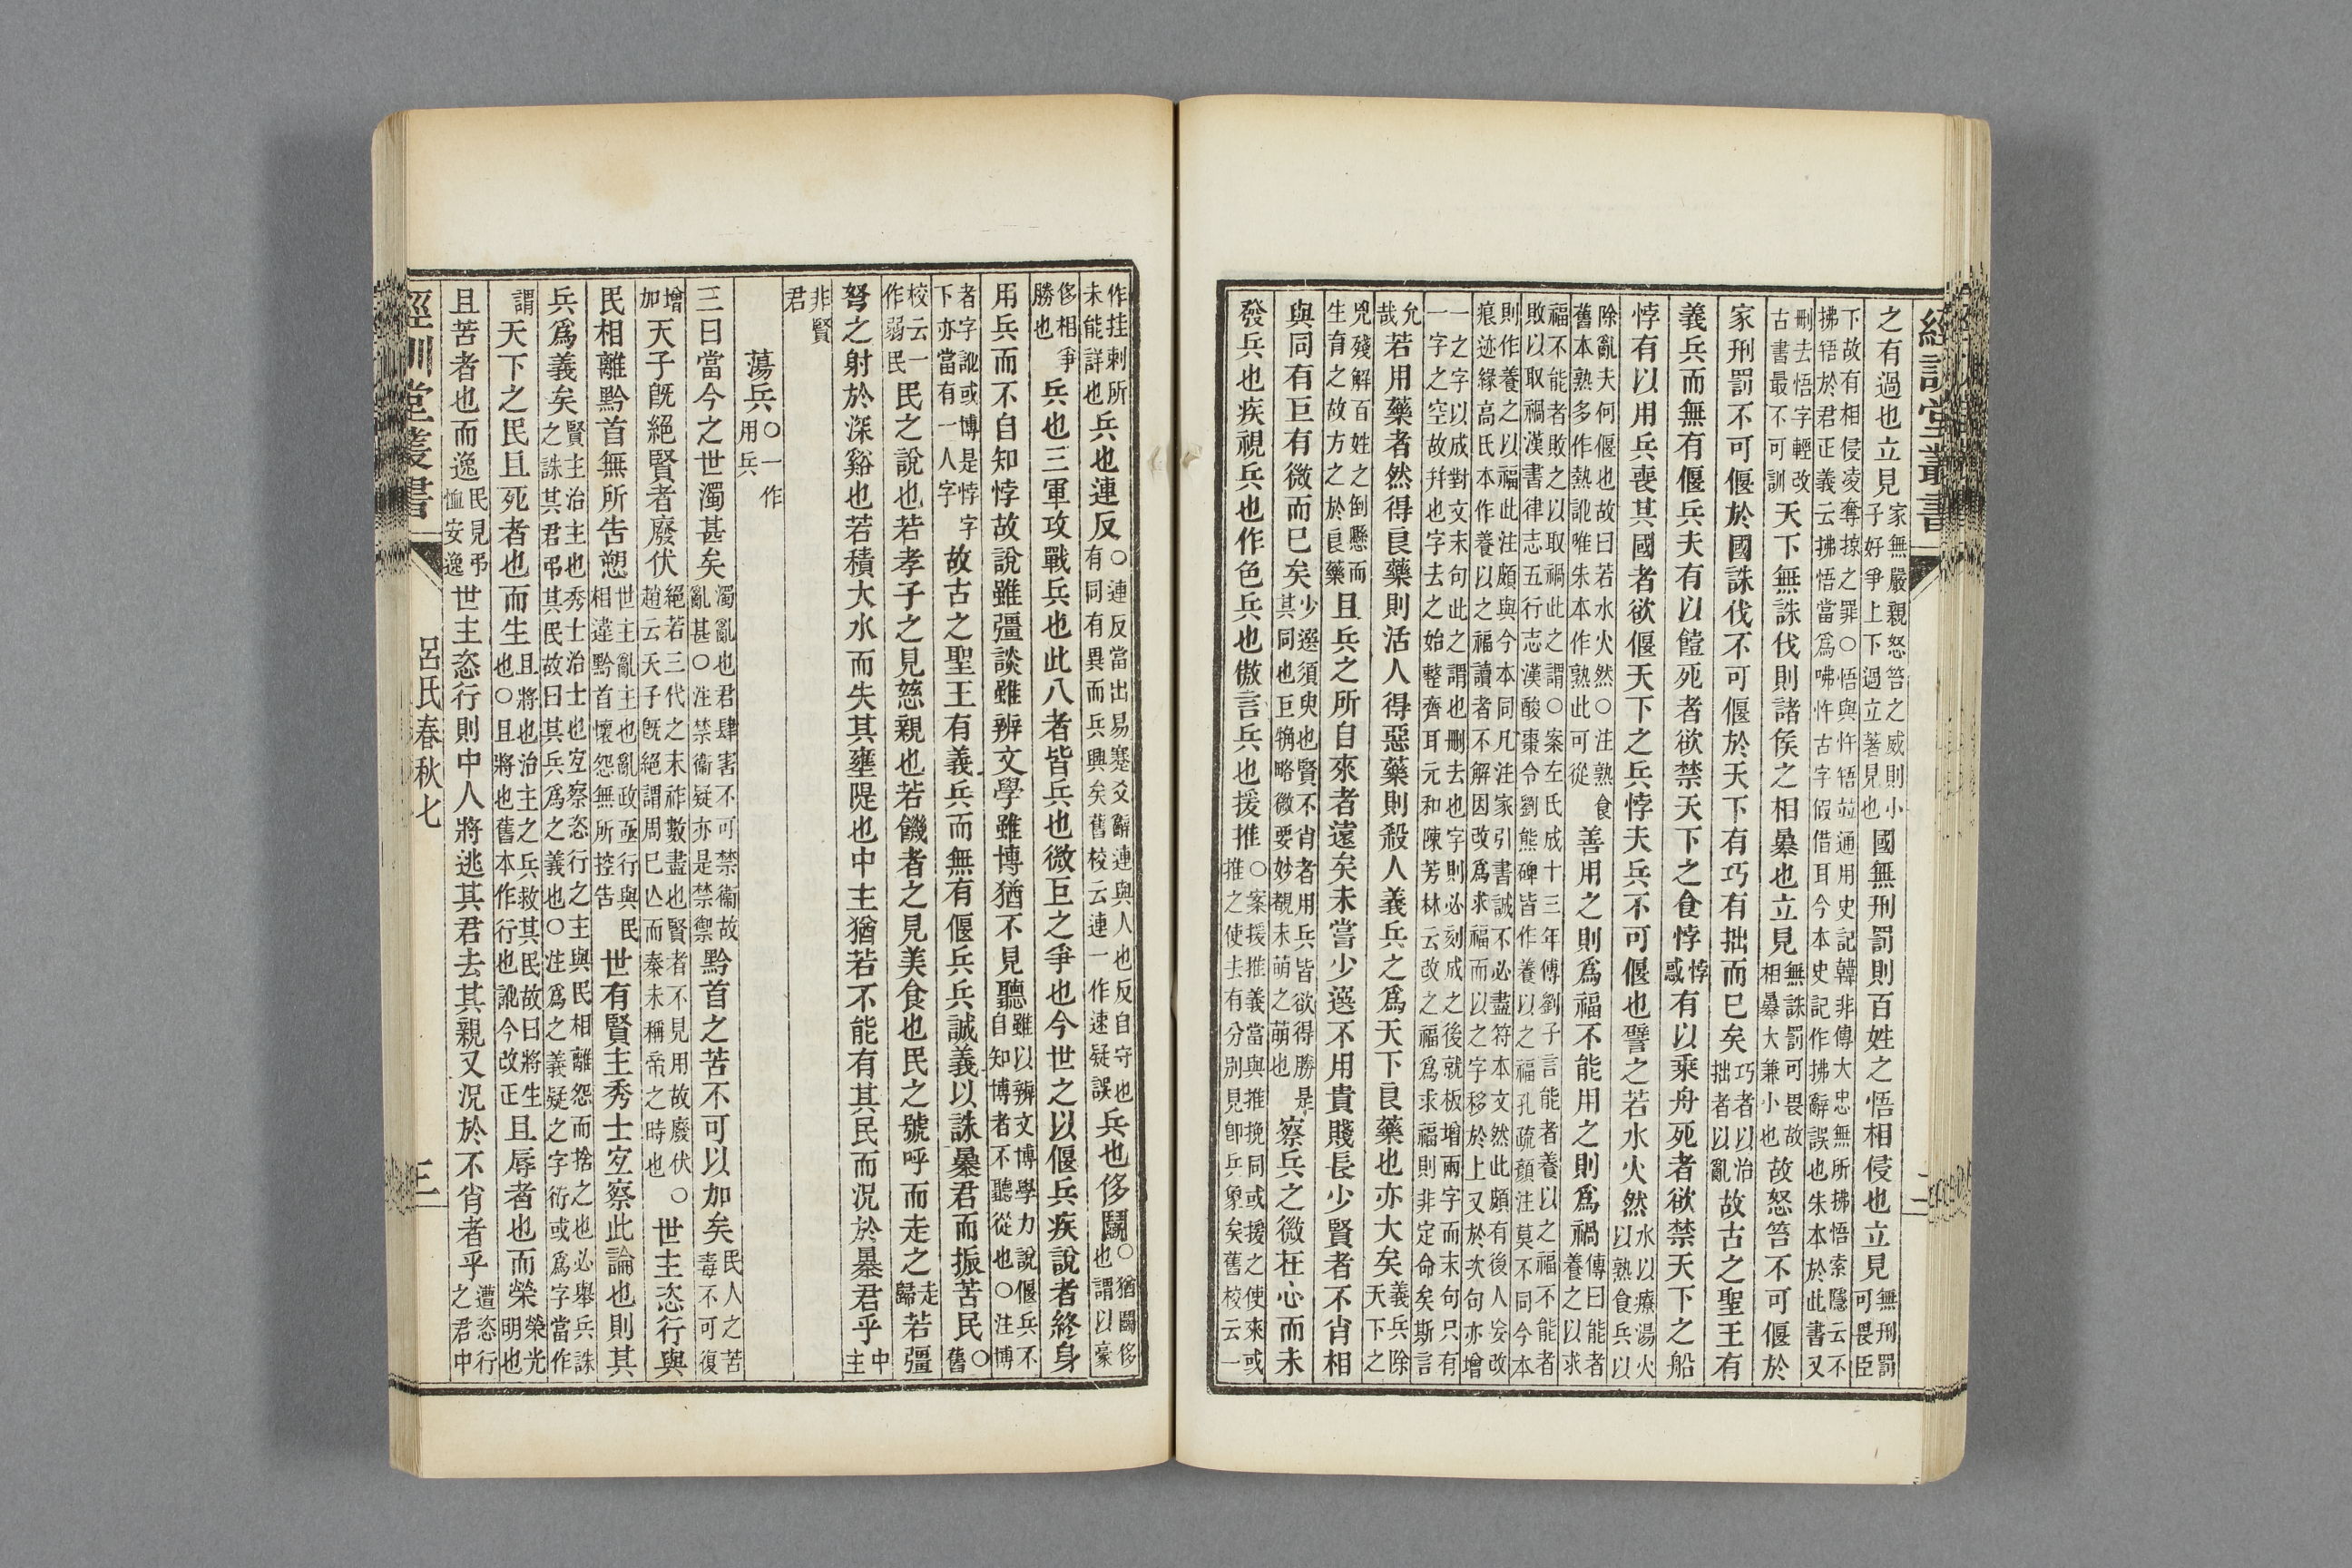 經訓堂叢書
二
之有過也立見家無嚴親怒笞之威則小
子好爭上下過立著見也國無刑罰則百姓之悟相侵也立見無刑罰
可畏臣
下故有相侵凌奪掠之罪○悟與忤牾竝通用史記韓非傳大忠無所拂悟索隱云不
拂牾於君正義云拂悟當爲咈忤古字假借耳今本史記作拂辭誤也朱本於此書又
刪去悟字輕改
古書最不可訓天下無誅伐則諸矦之相㬥也立見無誅罰可畏故
相㬥大兼小也故怒笞不可偃於
家刑罰不可偃於國誅伐不可偃於天下有巧有拙而已矣巧者以治
拙者以亂故古之聖王有
義兵而無有偃兵夫有以饐死者欲禁天下之食悖悖
惑有以乘舟死者欲禁天下之船
悖有以用兵喪其國者欲偃天下之兵悖夫兵不可偃也譬之若水火然水以療湯火
以熟食兵以
除亂夫何偃也故曰若水火然○注熟食
舊本熟多作熱訛唯朱本作孰此可從善用之則爲福不能用之則爲禍傳曰能者
養之以求
福不能者敗之以取禍此之謂○案左氏成十三年傳劉子言能者養以之福不能者
敗以取禍漢書律志五行志漢酸棗令劉熊碑皆作養以之福孔疏顏注莫不同今本
則作養之以福此注頗與今本同凡注家引書誠不必盡符本文然此頗有後人妄改
痕迹緣高氏本作養以之福讀者不解因改爲求福而以之字移於上又於次句亦增
一之字以成對文末句此之謂也刪去也字則必刻成之後就板增兩字而末句只有
一字之空故并也字去之始整齊耳元和陳芳林云改之福爲求福則非定命矣斯言
允
哉若用藥者然得良藥則活人得惡藥則殺人義兵之爲天下良藥也亦大矣義兵除
天下之
兇殘解百姓之倒懸而
生育之故方之於良藥且兵之所自來者遠矣未嘗少選不用貴賤長少賢者不肖相
與同有巨有微而已矣少選須臾也賢不肖者用兵皆欲得勝是
其同也巨觕略微要妙覩未萌之萌也察兵之微在心而未
發兵也疾視兵也作色兵也傲言兵也援推○案援推義當與推挽同或援之使來或
推之使去有分別見卽兵象矣舊校云一
作挂刺所
未能詳也兵也連反○連反當出易蹇爻辭連與人也反自守也
有同有異而兵興矣舊校云連一作速疑誤兵也侈鬭○猶鬭侈
也謂以豪
侈相爭
勝也兵也三軍攻戰兵也此八者皆兵也微巨之爭也今世之以偃兵疾說者終身
用兵而不自知悖故說雖彊談雖辨文學雖博猶不見聽雖以辨文博學力說偃兵不
自知博者不聽從也○注博
者字訛或博是悖字
下亦當有一人字故古之聖王有義兵而無有偃兵兵誠義以誅㬥君而振苦民○
舊
校云一
作弱民民之說也若孝子之見慈親也若饑者之見美食也民之號呼而走之走
歸若彊
弩之射於深谿也若積大水而失其壅隄也中主猶若不能有其民而況於㬥君乎中
主
非賢
君
蕩兵○一作
用兵
三曰當今之世濁甚矣濁亂也君肆害不可禁衞故
亂甚○注禁衞疑亦是禁禦黔首之苦不可以加矣民人之苦
毒不可復
增
加天子旣絕賢者廢伏絕若三代之末祚數盡也賢者不見用故廢伏○
趙云天子旣絕謂周已亾而秦未稱帝之時也世主恣行與
民相離黔首無所告愬世主亂主也亂政亟行與民
相違黔首懷怨無所控告世有賢主秀士宜察此論也則其
兵爲義矣賢主治主也秀士治士也宜察恣行之主與民相離怨而捨之也必舉兵誅
之誅其君弔其民故曰其兵爲之義也○注爲之義疑之字衍或爲字當作
謂天下之民且死者也而生且將也治主之兵救其民故曰將生
也○且將也舊本作行也訛今改正且辱者也而榮榮光
明也
且苦者也而逸民見弔
恤安逸世主恣行則中人將逃其君去其親又況於不肖者乎遭恣行
之君中
經訓堂叢書
呂氏春秋七
三